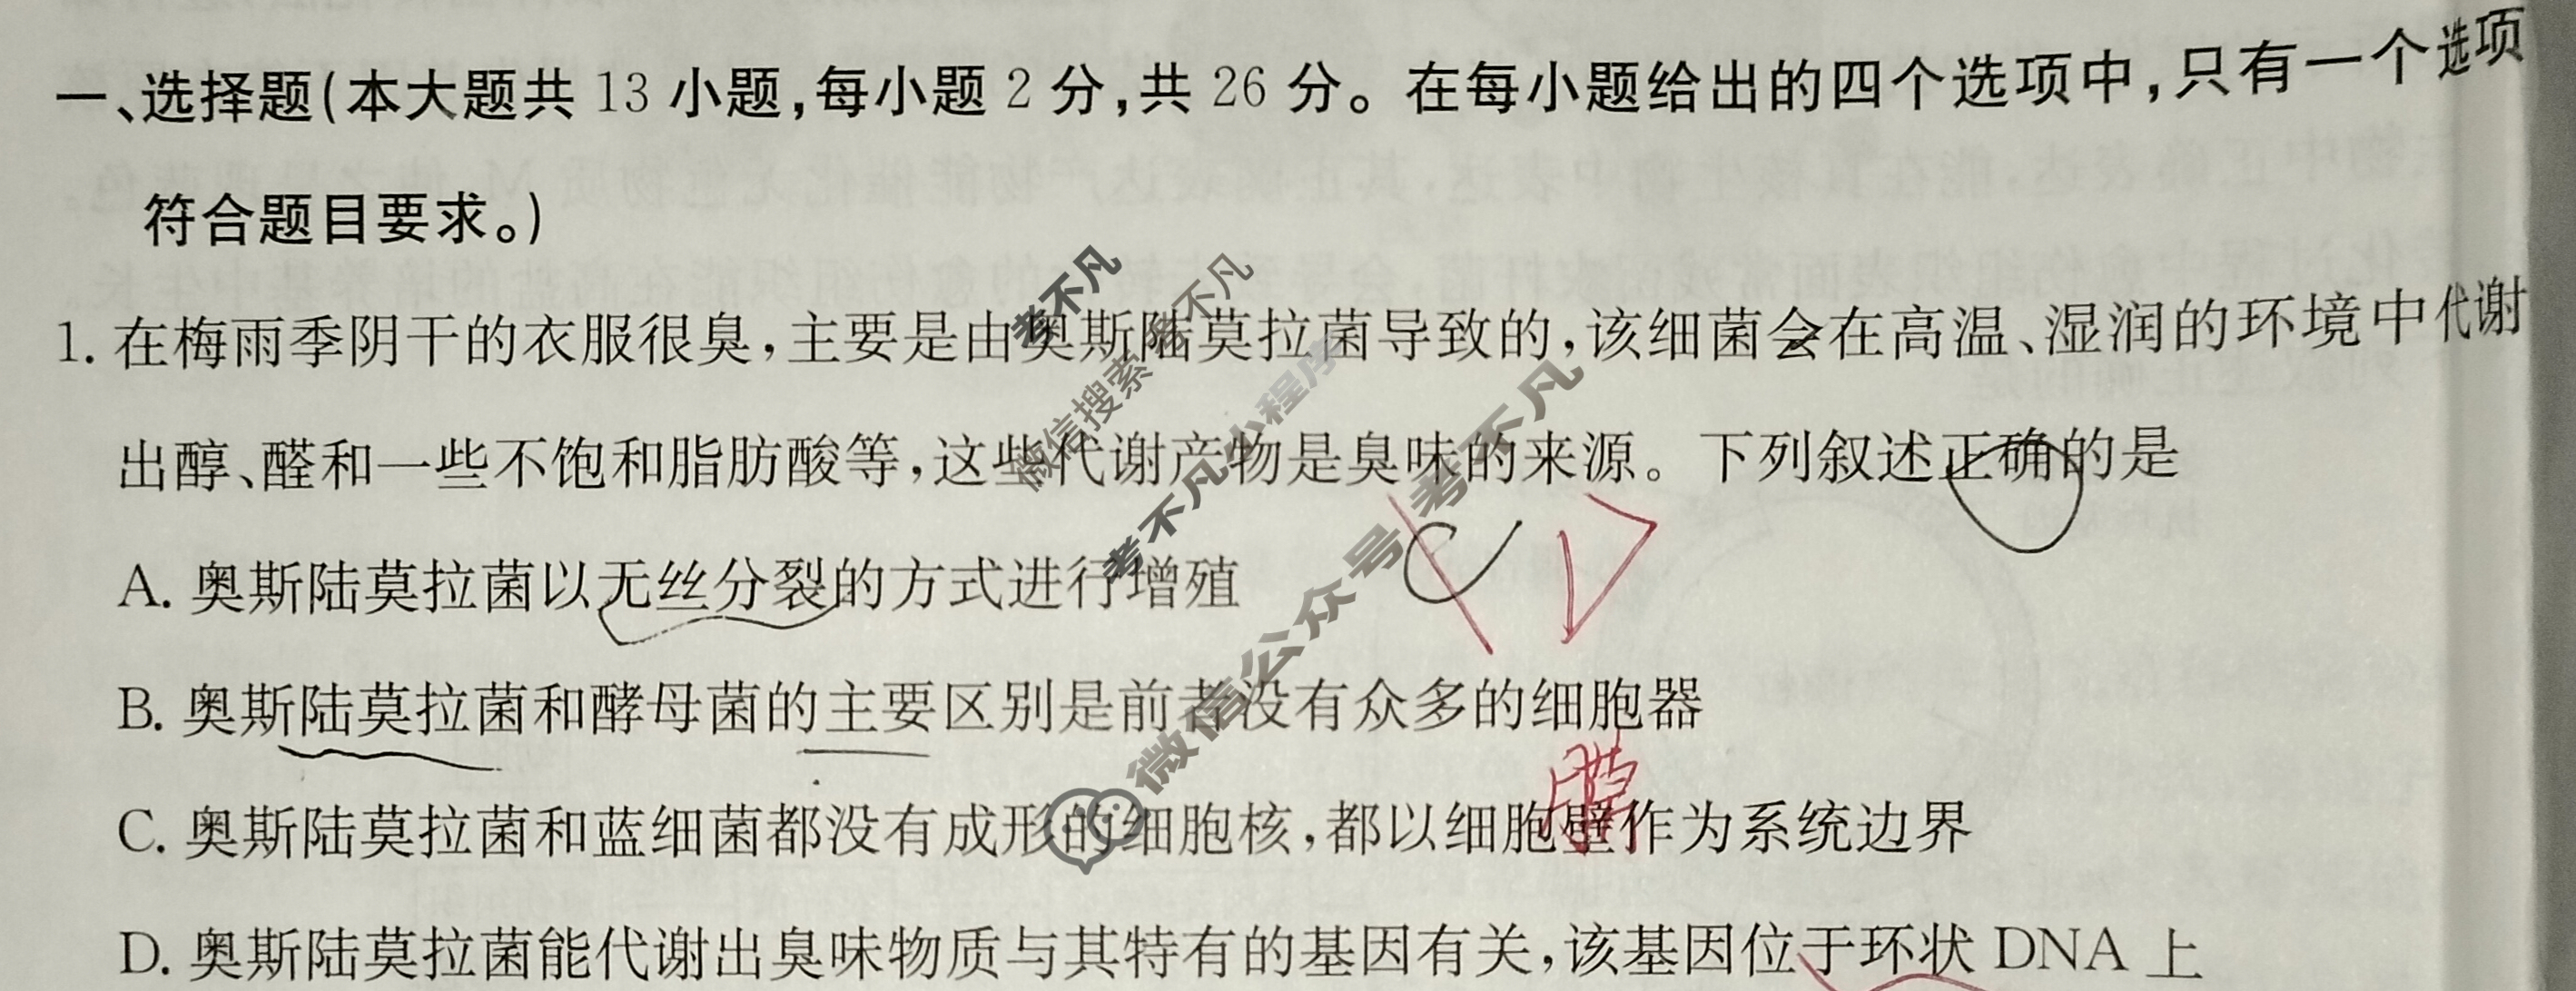 一、选择题(本大题共 13 小题,每小题 2 分,共 26 分。在每小题给出的四个选项中,只有一个选项
符合题目要求。)
1. 在梅雨季阴干的衣服很臭,主要是由奥斯陆莫拉菌导致的,该细菌会在高温、湿润的环境中代谢
出醇、醛和一些不饱和脂肪酸等,这些代谢产物是臭味的来源。下列叙述正确的是
C D
A. 奥斯陆莫拉菌以无丝分裂的方式进行增殖
B. 奥斯陆莫拉菌和酵母菌的主要区别是前者没有众多的细胞器
膜
C. 奥斯陆莫拉菌和蓝细菌都没有成形的细胞核,都以细胞壁作为系统边界
D. 奥斯陆莫拉菌能代谢出臭味物质与其特有的基因有关,该基因位于环状 DNA 上
考不凡
微信搜索 考不凡
考不凡小程序
微信公众号 考不凡